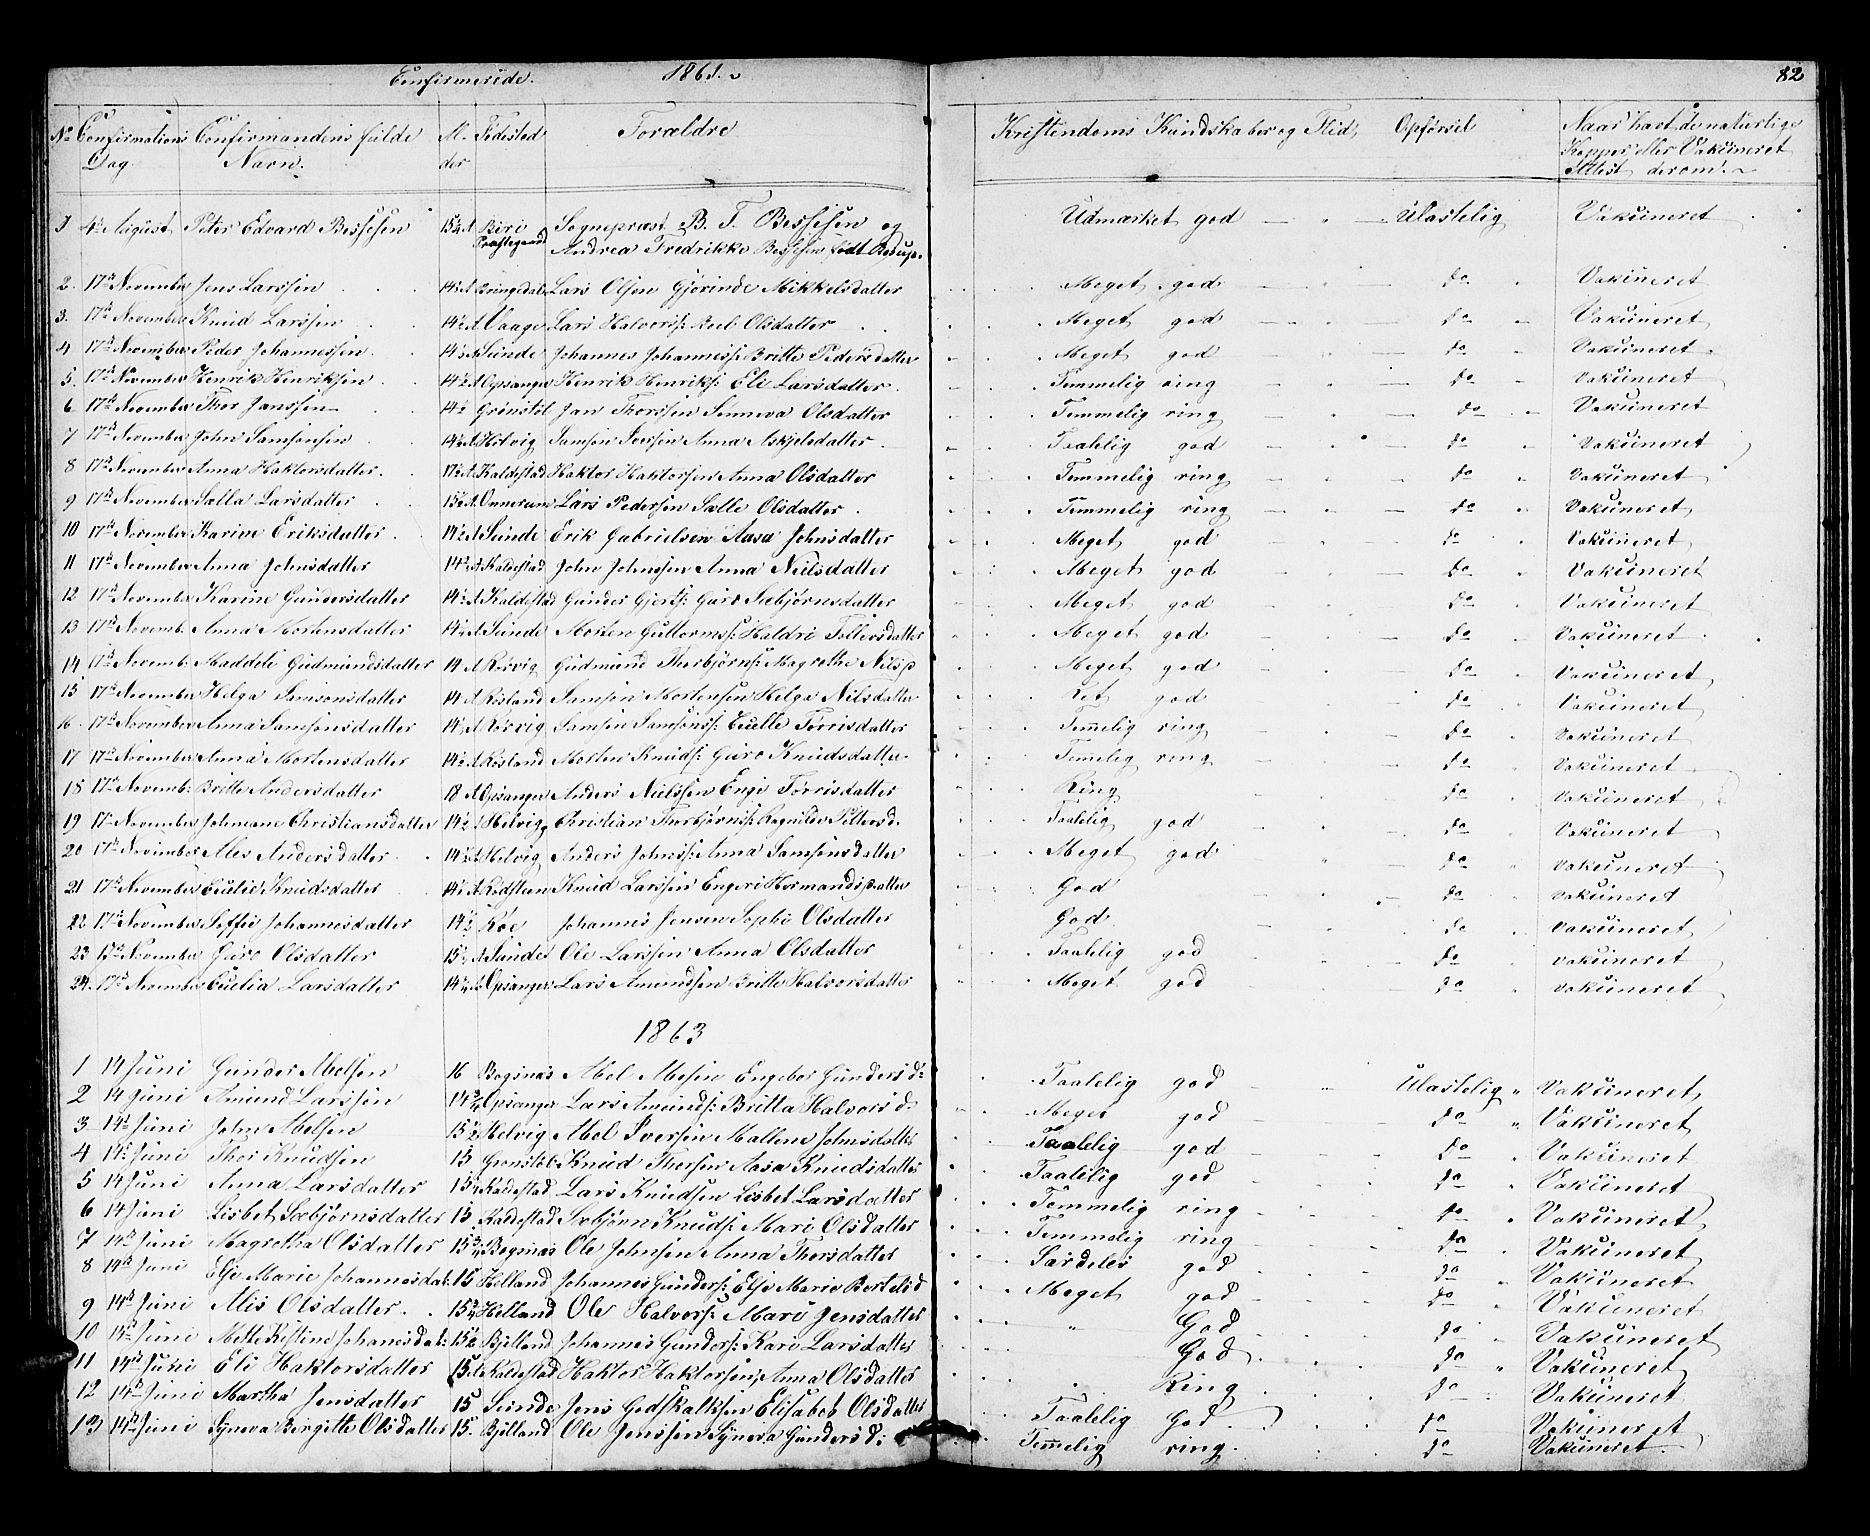 Confirmerede. 1861. 82
No Confirmations Dag. Confirmandens fulde Navn. Al- der Fødested Forældre Kristendoms Kundskaber og Flid, Opførsel Naar havt de naturlige Kopper eller Vakcineret Attest derom.
1 4de August Peter Edvard Bessesen 15½ A Præstegaard Sogneprest B. T. Bessesen og Andrea Fredrikke Bessesen født Udmærket god Ulastelig Vakuineret
2. 17de November Jens Larssen 14½ A Lars Olsen Gjorinde Mikkelsdatter Meget god do Vakuineret
3. 17de November Knud Larssen 14½ A Vaage Lars Halvorss: Olsdatter Meget god do Vakuineret
4 17de November Peder Johannessen 14½ A Sunde Johannes Johanness: Britte Pedersdatter Meget god do Vakuineret
5. 17de November Henrik Henriksen 14½ A Opsanger Henrik Henriks: Eli Larsdatter Temmelig ring do Vakuineret
6 17de November Thor Janssen 14½ Grønstøl Jan Thorssen Sunneva Olsdatter Temmelig ring do Vakuineret
7 17de November John Samsonsen 14½ A Helvig Samson Iverssen Anna Askjelsdatter Taalelig god do Vakuineret
8 17de November Anna Haktorsdatter 17½ A Kaldestad Haktor Haktorssen Anna Olsdatter Temmelig ring do Vakuineret
9 17de November Salla Larsdatter 15½ A Lars Pedersen Sælle Olsdatter Temmelig ring do Vakuineret
10 17de November Karine Eriksdatter 14½ A Sunde Erik Gabrielsen Aasa Johnsdatter Meget god do Vakuineret
11 17de November Anna Johnsdatter 14½ A Kaldestad John Johnssen Anna Nielsdatter Meget god do Vakuineret
12 17de November Karine Gundersdatter 14½ A Kaldestad Gunder Gjerts: Guro Sæbjørnsdatter Meget god do Vakuineret
13 17de Novemb. Anna Mortensdatter 14½ A Sunde Morten Guttorms: Haldri Tollevsdatter Meget god do Vakuineret
14 17de Novemb: Maddele Gudmundsdatter 14 A Rørvig Gudmund Thorbjørns: Magrethe Nilsd Meget god do Vakuineret
15 17de November Helga Samsonsdatter 14 A Røsland Samson Mortensen Helga Nilsdatter Ret god do Vakuineret
16 17de November Anna Samsonsdatter 14½ A Rørvig Samson Samsonss: Torrisdatter Temelig ring do Vakuineret
17 17de November Anna Mortensdatter 14½ A Røsland Morten Knuds: Guro Knudsdatter Temelig ring do Vakuineret
18 17de Novemb: Britte Andersdatter 18 A Opsanger Anders Nielssen Engi Torrisdatter Ring do Vakuineret
19 17de November Johanne Christiansdatter 14½ A Helvig Christian Thorbjørnss: Ragnilda Pettersd. Taalelig god do Vakuineret
20 17de November Ales Andersdatter 14½ A Helvig Anders Johnss: Anna Samsonsdatter Meget god do Vakuineret
21 17de November Knudsdatter 14½ A Rødsteen Knud Larssen Engeri Hermandsdatter God do Vakuineret
22 17de November Soffie Johannesdatter 14½ Røe Johannes Jensen Sophi Olsdatter God do Vakuineret
23 17de November Guro Olsdatter 15 A Sunde Ole Larssen Anna Olsdatter Taalelig god do Vakuineret
24. 17de November Larsdatter 14½ A Opsanger Lars Amundsen Britte Halvorsdatter Meget god do Vakuineret
1863
1 14 Juni Gunder Abelsen 16 Bogsnæs Abel Abelsen Engebor Gunders d: Taalelig god Ulastelig Vakuineret
2 14 Juni Amund Larssen 14¾ Opsanger Lars Amunds: Britta Halvors d. Meget god do Vakuineret
3 14de Juni John Abelsen 15½ Helvig Abel Iversen Mallene Johnsdatter Taalelig god do Vakuineret
4 14de Juni Thor Knudsen 15 Grønstøl Knud Thorsen Aasa Knudsdatter Taalelig god do Vakuineret
5 14 Juni Anna Larsdatter 15½ Kaldestad Lars Knudsen Lisbet Larsdatter Temmelig ring do Vakuineret
6 14 Juni Lisbet Sæbjørnsdatter 15 Kaldestad Sæbjørn Knuds: Mari Olsdatter Temmelig ring do Vakuineret
7 14de Juni Magretha Olsdatter 15¾ Bogsnæs Ole Johnsen Anna Thorsdatter Særdeles god do Vakuineret
8 14de Juni Else Marie Johannesdat: 15 Helland Johannes Gunders: Else Marie Bertelsd Meget god do Vakuineret
9 14de Juni Alis Olsdatter. 15¾ Helland Ole Halvors: Mari Jensdatter " God do Vakuineret
10 14de Juni Mette Kistine Johanesdat: 15½ Bjelland Johannes Gunders: Kari Larsdatter God do Vakuineret
11 14de Juni Eli Haktorsdatter 15 A Kaldestad Haktor Haktorssen Anna Olsdatter Ring do Vakuineret
12 14de Juni Martha Jensdatter 15 Sunde Jens Godskalksen Elisabet Olsdatter Taalelig God do Vakuineret
13 14de Juni Syneva Birgitte Olsdatter 15. Bjelland Ole Jenssen Syneva Gunders d: Temelig ring do Vakuineret